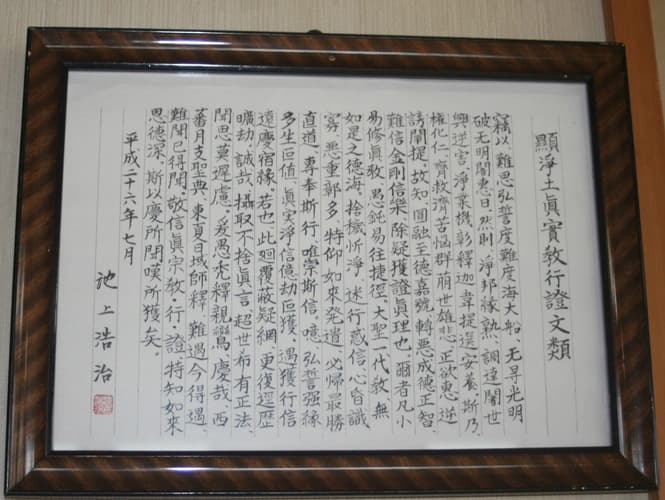 顯淨土眞實教行證文類
竊以、難思弘誓度難度海大船、无㝵光明
破无明闇惠日。然則、淨邦緣熟、調達闍世
興逆害、淨業機彰、釋迦韋提選安養。斯乃、
權化仁、齊救濟苦惱群萠、世雄悲、正欲惠逆
謗闡提。故知、圓融至德嘉號、轉惡成德正智、
難信金剛信樂、除疑獲證眞理也。爾者、凡小
易修眞教、愚鈍易往捷徑。大聖一代教、無
如是之德海。捨穢忻淨、迷行惑信、心昏識
寡、惡重鄣多、特仰如來發遣、必歸最勝
直道、專奉斯行、唯崇斯信。噫、弘誓强緣
多生叵値、眞実淨信億劫叵獲。遇獲行信
遠慶宿緣。若也、此廻覆蔽疑網、更復逕歷
曠劫。誠哉、攝取不捨眞言、超世希有正法、
聞思莫遲慮。爰愚禿釋親鸞、慶哉、西
蕃月支聖典、東夏日域師釋、難遇今得遇、
難聞已得聞。敬信眞宗教・行・證、特知如來
恩德深。斯以慶所聞、嘆所獲矣。
平成二十六年七月
池上浩治